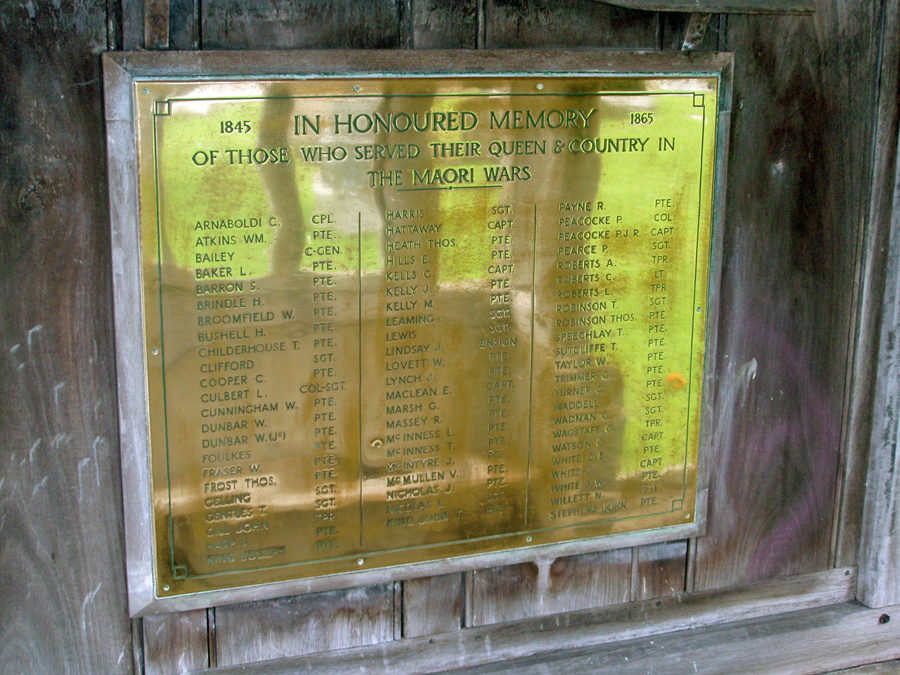 1845 IN HONOURED MEMORY 1865
OF THOSE WHO SERVED THEIR QUEEN & COUNTRY IN
THE MAORI WARS
ARNABOLDI C. CPL.
ATKINS WM. PTE.
BAILEY C-GEN.
BAKER L. PTE.
BARRON S. PTE.
BRINDLE H. PTE.
BROOMFIELD W. PTE.
BUSHELL H. PTE.
CHILDERHOUSE T. PTE.
CLIFFORD SGT.
COOPER C. PTE.
CULBERT L. COL-SGT.
CUNNINGHAM W. PTE.
DUNBAR W. PTE.
DUNBAR W. (JR) PTE.
FOULKES PTE.
FRASER W. PTE.
FROST THOS. PTE.
GELLING SGT.
GENTLES T. SGT.
GILL JOHN TPR.
PTE.
KING JOSEPH PTE.
HARRIS SGT.
HATTAWAY CAPT.
HEATH THOS. PTE.
HILLS E. PTE.
KELLS CAPT.
KELLY J. PTE.
KELLY M. PTE.
LEAMING SGT.
LEWIS SGT.
LINDSAY J. ENSIGN
LOVETT W. PTE.
LYNCH J. PTE.
MACLEAN E. CAPT.
MARSH G. PTE.
MASSEY R. PTE.
McINNESS L. PTE.
McINNESS T. PTE.
McINTYRE J. PTE.
McMULLEN V. PTE.
NICHOLAS J. PTE.
NICOLAS
KING JOHN
PAYNE R. PTE.
PEACOCKE P. COL.
PEACOCKE P.J.R. CAPT.
PEARCE P. SGT.
ROBERTS A. TPR.
ROBERTS C. LT
ROBERTS L. TPR.
ROBINSON T. SGT.
ROBINSON THOS. PTE.
SPEECHLAY T. PTE.
SUTCLIFFE T. PTE.
TAYLOR W. PTE.
TRIMMER G. PTE.
TURNER G. PTE.
WADDELL SGT.
WADMAN G. SGT.
WAGSTAFF G. TPR.
WATSON CAPT.
WHITE PTE.
WHITE CAPT.
WHITE PTE.
WILLETT N. SGT.
STEPHENS JOHN PTE.